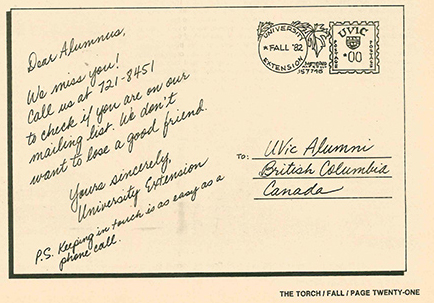 Dear Alumnus,
We miss you!
Call us at 721-8451
to check if you are on our
mailing list. We don't
want to lose a good friend.
Yours sincerely,
University Extension
P.S. Keeping in touch is as easy as a
phone call.
UNIVERSITY
FALL '82
EXTENSION
UVIC
POSTAGE
·00
POSTAGE
TO: UVic Alumni
British Columbia
Canada
THE TORCH / FALL / PAGE TWENTY-ONE